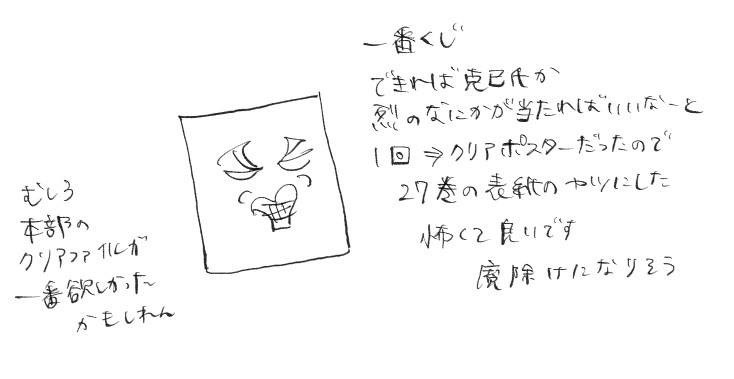 一番くじ
できれば克巳氏か
烈のなにかが当たればいいなーと
1回⇒クリアポスターだったので
27巻の表紙のヤツにした
怖くて良いです
魔除けになりそう
むしろ
本部の
クリアファイルが
一番欲しかった
かもしれん